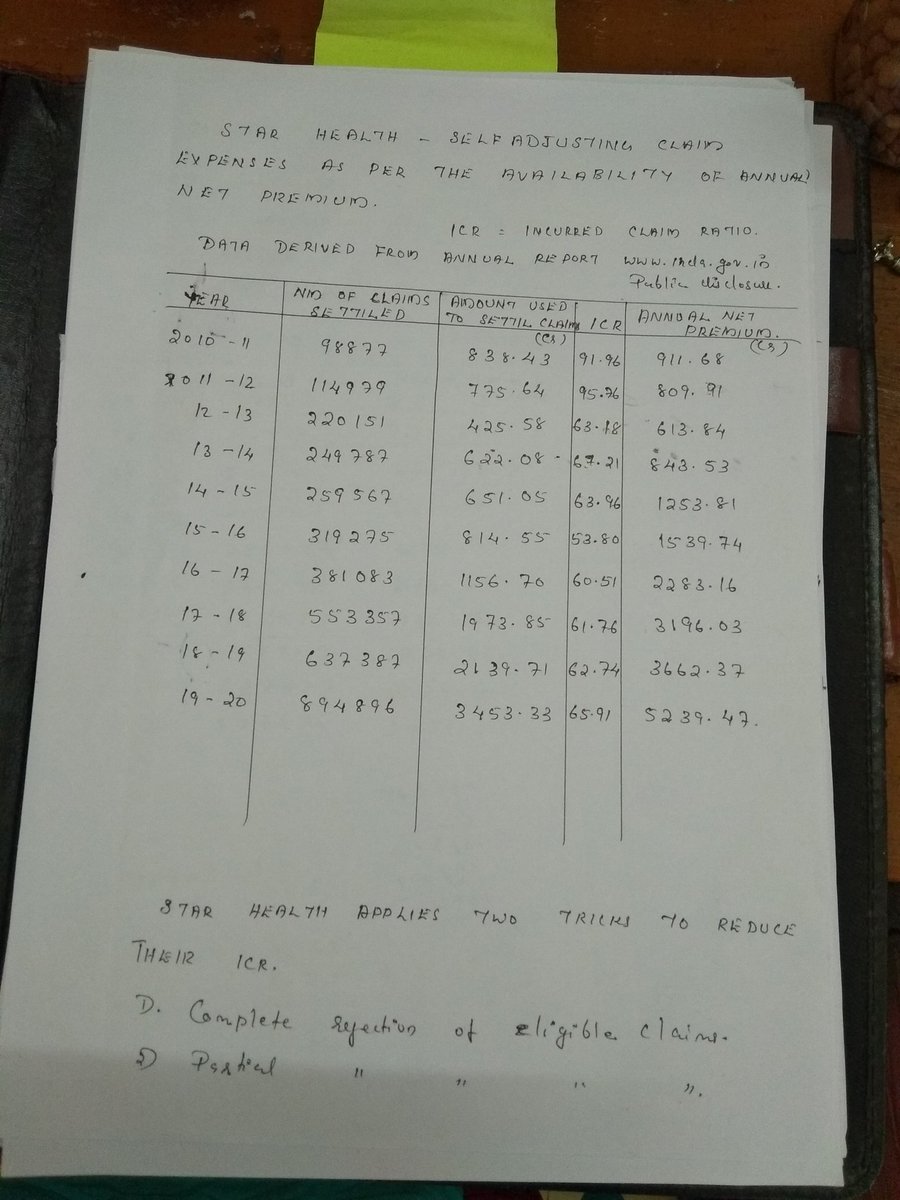 STAR HEALTH - SELF ADJUSTING CLAIM
EXPENSES AS PER THE AVAILABILITY OF ANNUAL
NET PREMIUM.
ICR = INCURRED CLAIM RATIO.
DATA DERIVED FROM ANNUAL REPORT www.irda.gov.in
Public disclosure.
YEAR NO OF CLAIMS SETTILED AMOUNT USED TO SETTIL CLAIM (Cr) ICR ANNUAL NET PREMIUM. (Cr)
2010-11 98877 838.43 91.96 911.68
2011-12 114979 775.64 95.76 809.91
12-13 220151 425.58 63.18 613.84
13-14 249787 622.08 67.21 843.53
14-15 259567 651.05 63.96 1253.81
15-16 319275 814.55 53.80 1539.74
16-17 381083 1156.70 60.51 2283.16
17-18 553357 1973.85 61.76 3196.03
18-19 637387 2139.71 62.74 3662.37
19-20 894896 3453.33 65.91 5239.47.
STAR HEALTH APPLIES TWO TRICKS TO REDUCE
THEIR ICR.
1). Complete rejection of eligible claims.
2) Partial " " " ".